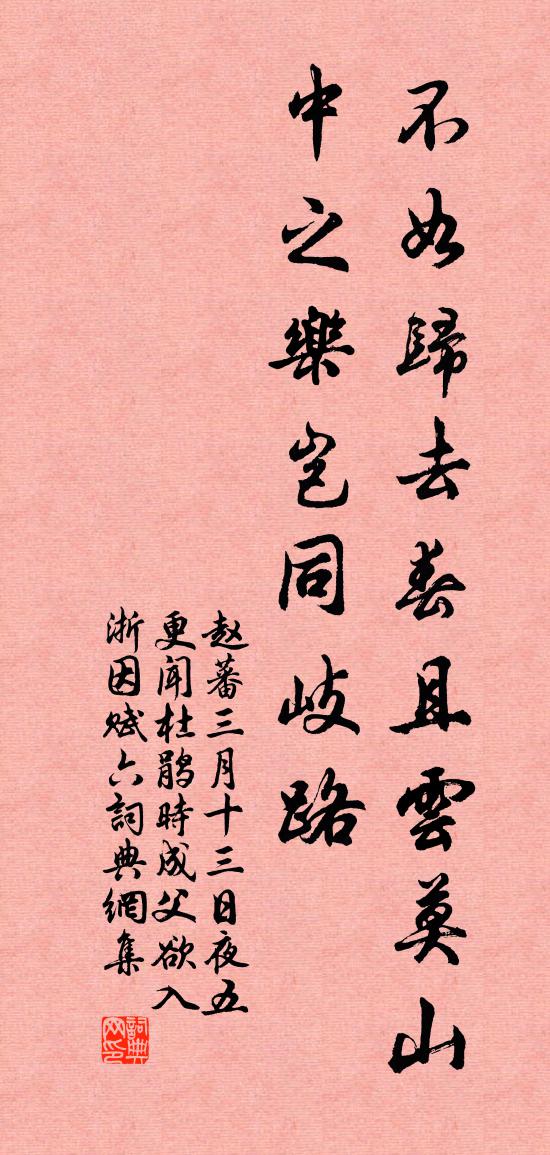 不如歸去春且雲莫山
中之樂豈同歧路
赵蕃三月十三日夜五
更闻杜鹃時成父欲入
浙因赋六詞典網集
詞典網印